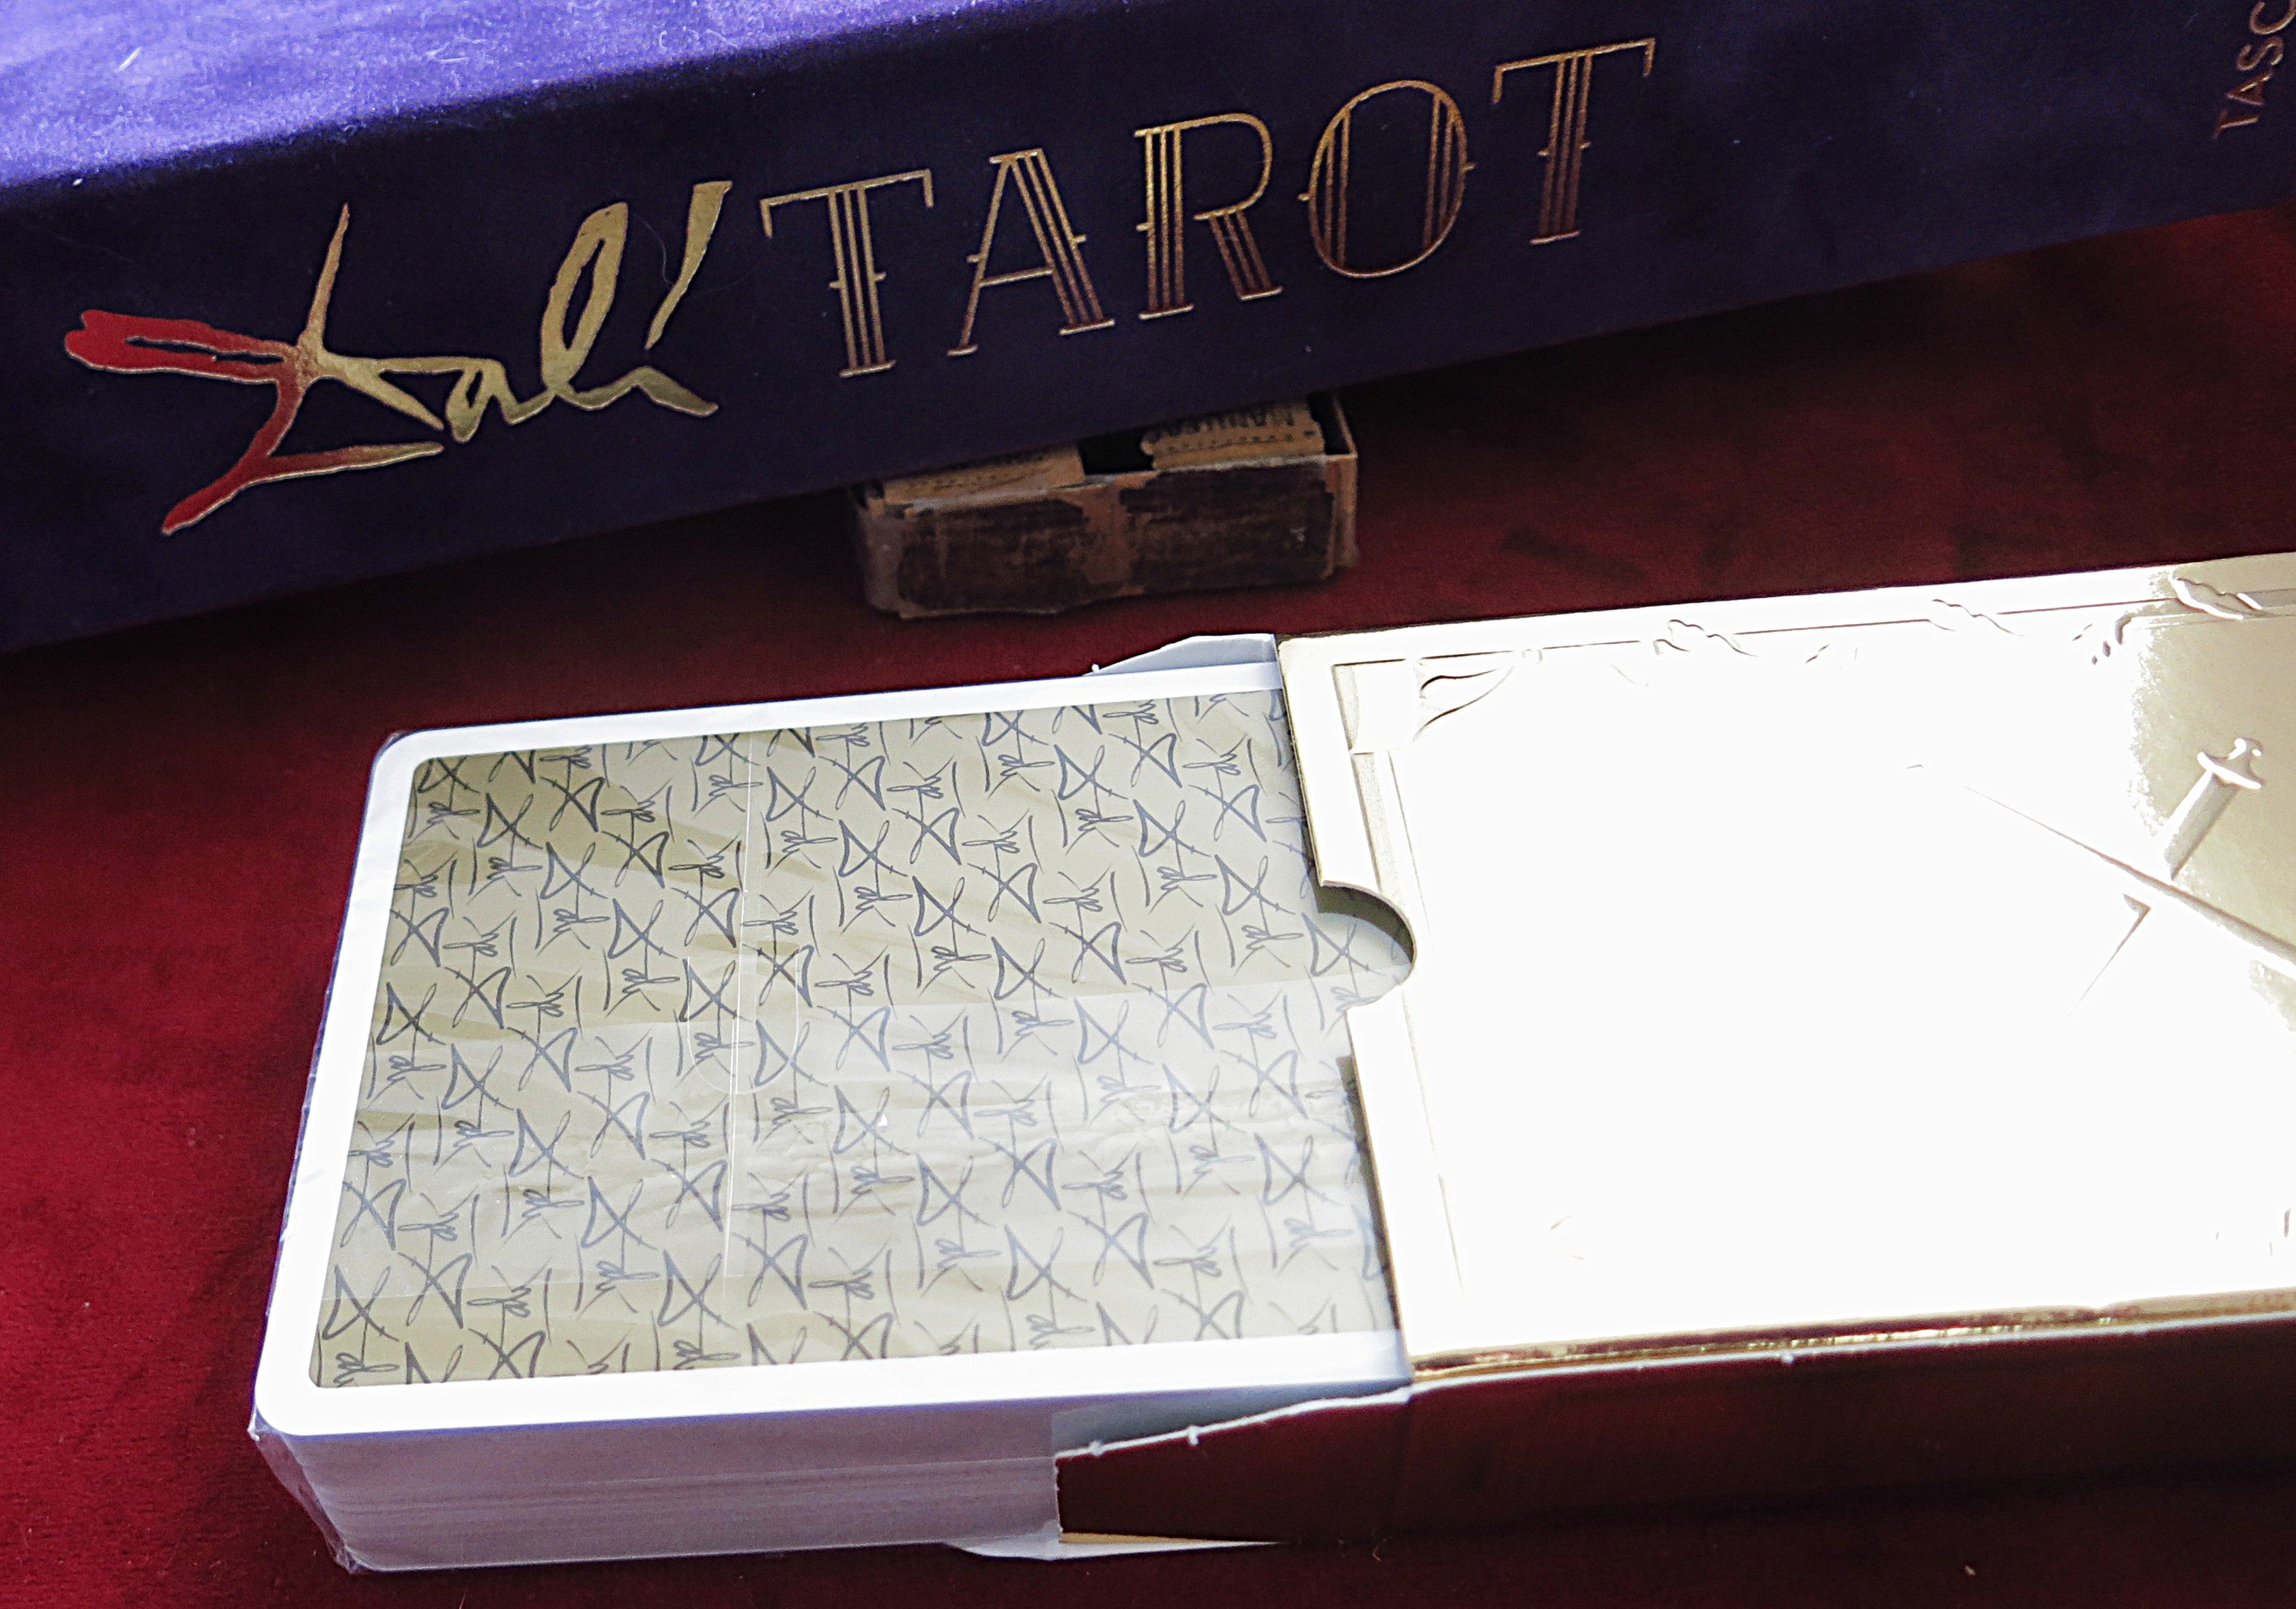 Dalí TAROT
TASC